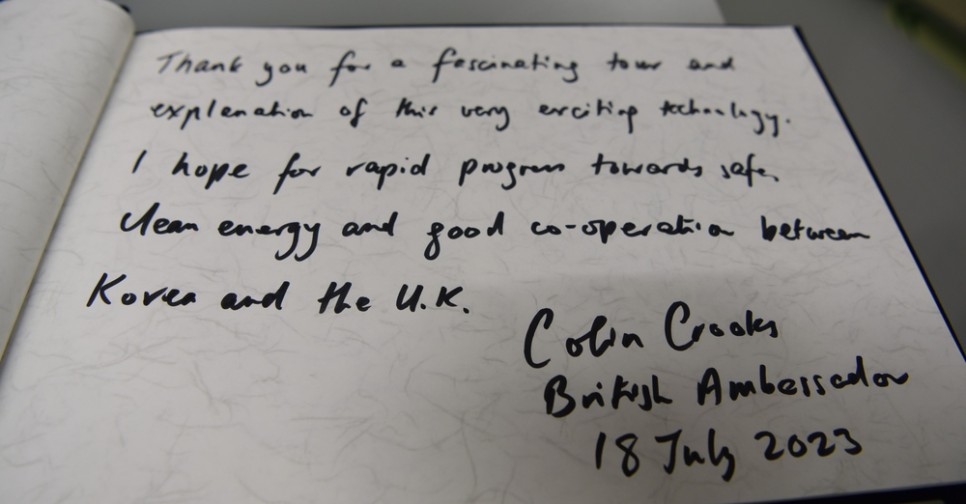 Thank you for a fascinating tour and
explanation of this very exciting technology.
I hope for rapid progress towards safe,
clean energy and good co-operation between
Korea and the U.K.
Colin Crooks
British Ambassador
18 July 2023